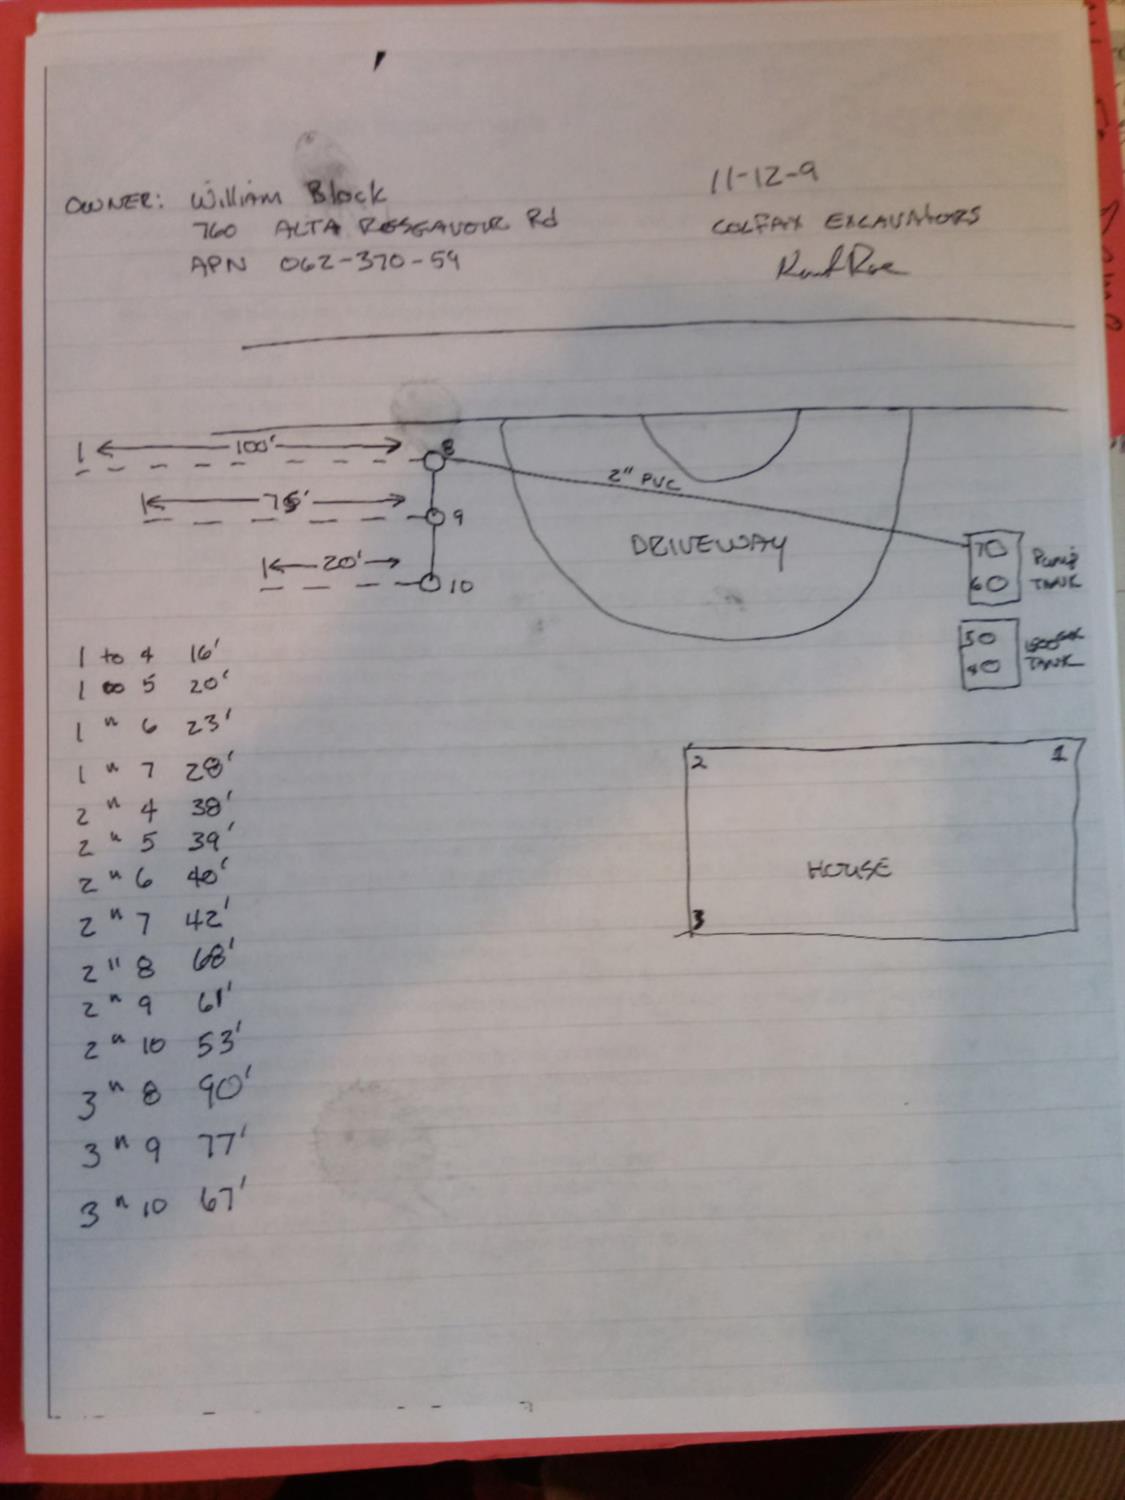 OWNER: William Block
760 ALTA RESEAVOUR Rd
APN 062-370-59
11-12-9
COLFAX EXCAVATORS
100'
8
2" PVC
75'
9
DRIVEWAY
20'
10
70
60
PUMP
TANK
50
40
TANK
1 to 4 16'
1 to 5 20'
1 " 6 23'
1 " 7 28'
2 " 4 38'
2 " 5 39'
2 " 6 40'
2 " 7 42'
2 " 8 68'
2 " 9 61'
2 " 10 53'
3 " 8 90'
3 " 9 77'
3 " 10 67'
2
1
HOUSE
3